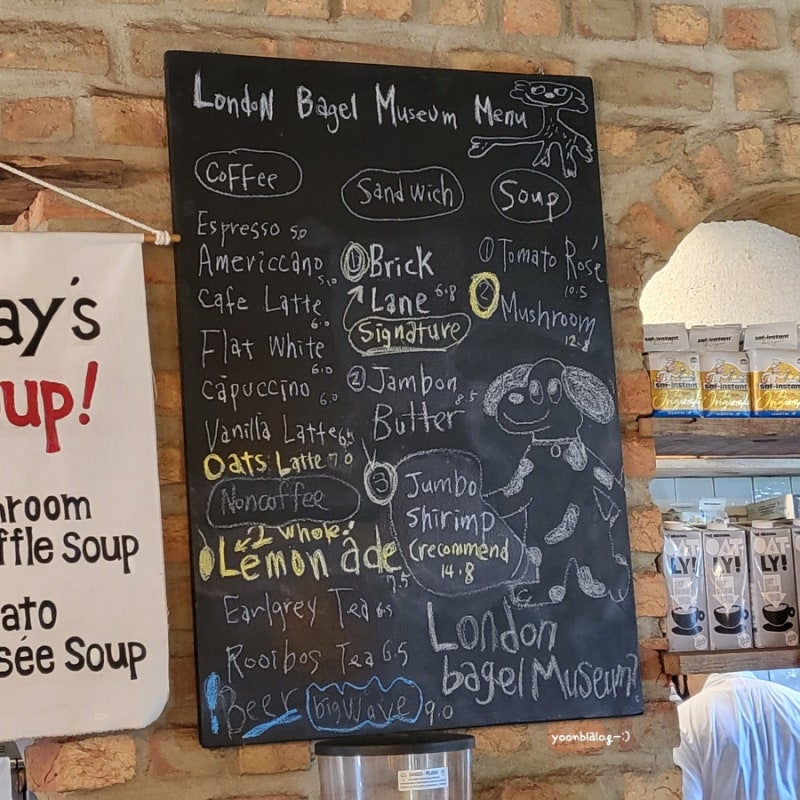 London Bagel Museum Menu
Coffee
Espresso 5.0
Americcano 5.0
Cafe Latte 6.0
Flat White 6.0
Cápuccino 6.0
Vanilla Latte
Oats Latte 7.0
Noncoffee
2 whole!
Lemonade 7.5
Earlgrey Tea 6.5
Rooibos Tea 6.5
! Beer bigwave 9.0
Sandwich
① Brick
Lane 6.8
Signature
② Jambon
Butter 8.5
③ Jumbo
Shirimp
(recommend
14.8
Soup
① Tomato Rosé
10.5
② Mushroom
12.8
London
bagel Museum
ay's
up!
room
ffle Soup
ato
sée Soup
saf-instant
saf-instant
saf-instant
OATLY!
OATLY!
OATLY!
yoonblalog-:)